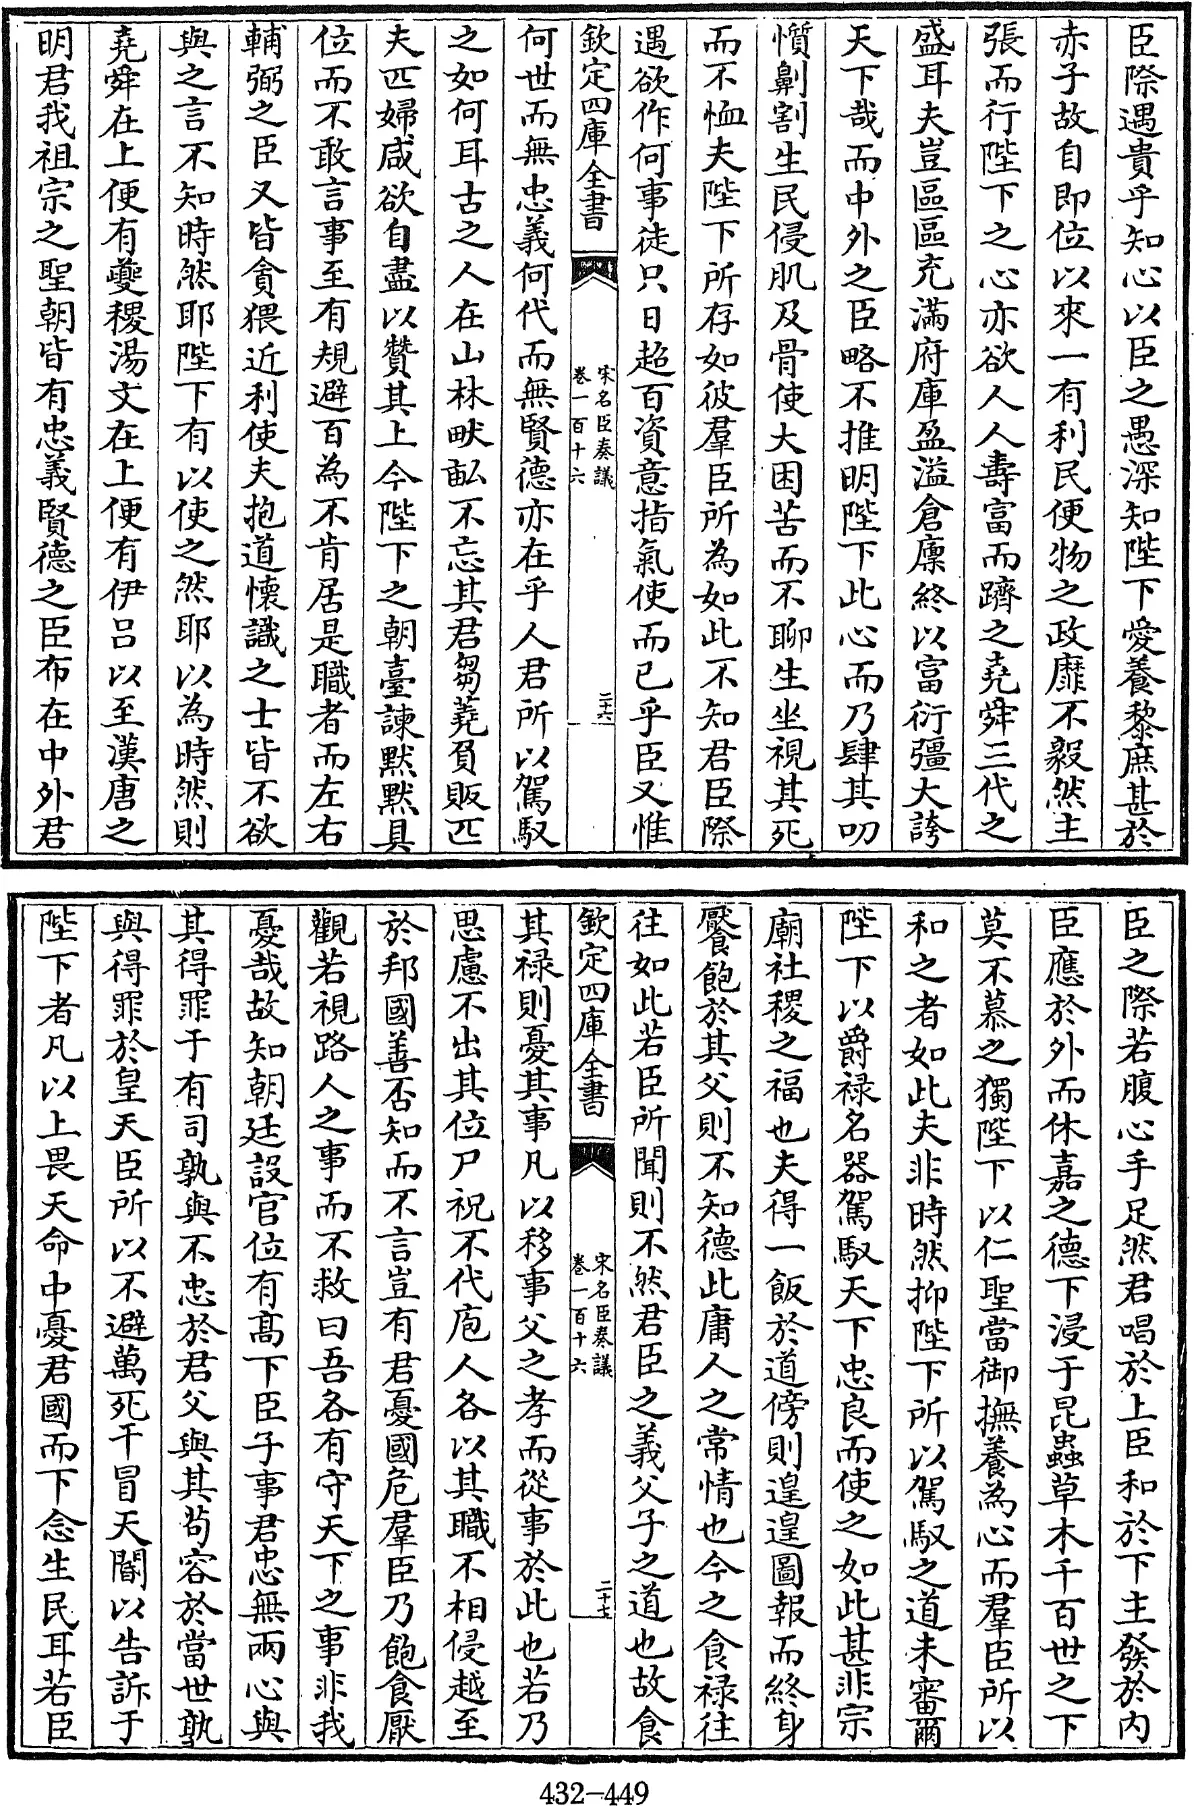 臣際遇貴乎知心以臣之愚深知陛下愛養黎庶甚於
赤子故自即位以來一有利民便物之政靡不毅然主
張而行陛下之心亦欲人人壽富而躋之堯舜三代之
盛耳夫豈區區充滿府庫盈溢倉廩終以富衍彊大誇
天下哉而中外之臣略不推明陛下此心而乃肆其叨
懫劓割生民侵肌及骨使大困苦而不聊生坐視其死
而不恤夫陛下所存如彼羣臣所為如此不知君臣際
遇欲作何事徒只日超百資意指氣使而已乎臣又惟
欽定四庫全書
宋名臣奏議
卷一百十六
二十六
何世而無忠義何代而無賢德亦在乎人君所以駕馭
之如何耳古之人在山林畎畝不忘其君芻蕘負販匹
夫匹婦咸欲自盡以贊其上今陛下之朝臺諫默默具
位而不敢言事至有規避百為不肯居是職者而左右
輔弼之臣又皆貪猥近利使夫抱道懷識之士皆不欲
與之言不知時然耶陛下有以使之然耶以為時然則
堯舜在上便有夔稷湯文在上便有伊呂以至漢唐之
明君我祖宗之聖朝皆有忠義賢德之臣布在中外君
臣之際若腹心手足然君唱於上臣和於下主發於內
臣應於外而休嘉之德下浸于昆蟲草木千百世之下
莫不慕之獨陛下以仁聖當御撫養為心而羣臣所以
和之者如此夫非時然抑陛下所以駕馭之道未審爾
陛下以爵祿名器駕馭天下忠良而使之如此甚非宗
廟社稷之福也夫得一飯於道傍則遑遑圖報而終身
饜飽於其父則不知德此庸人之常情也今之食祿往
往如此若臣所聞則不然君臣之義父子之道也故食
欽定四庫全書
宋名臣奏議
卷一百十六
二十七
其祿則憂其事凡以移事父之孝而從事於此也若乃
思慮不出其位尸祝不代庖人各以其職不相侵越至
於邦國善否知而不言豈有君憂國危羣臣乃飽食厭
觀若視路人之事而不救曰吾各有守天下之事非我
憂哉故知朝廷設官位有高下臣子事君忠無兩心與
其得罪于有司孰與不忠於君父與其苟容於當世孰
與得罪於皇天臣所以不避萬死干冒天閽以告訴于
陛下者凡以上畏天命中憂君國而下念生民耳若臣
432-449